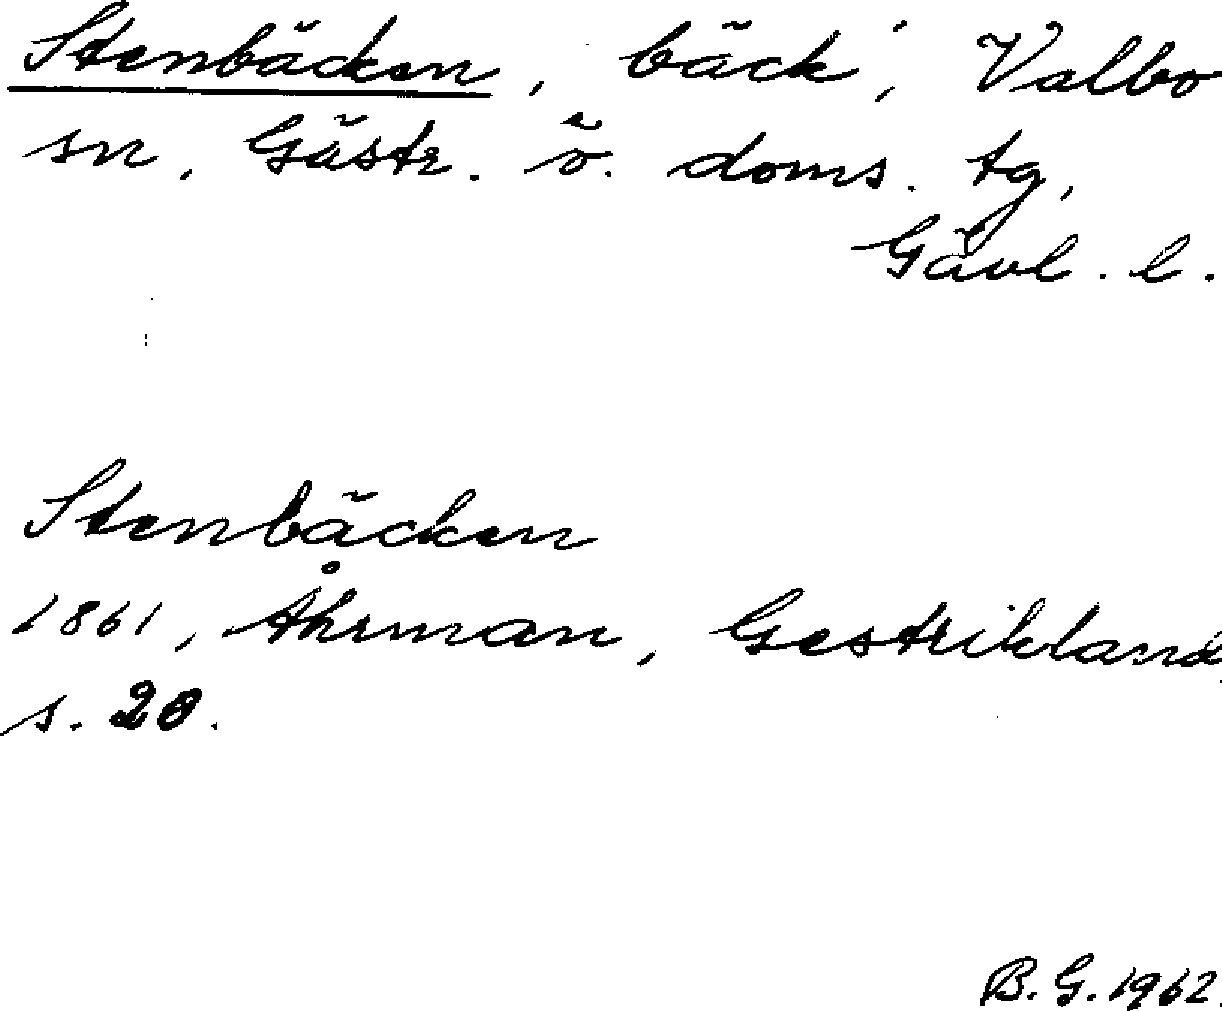 Stenbäcken, bäck, Valbo
sn, Gästr. ö. doms. tg,
Gävl. l.
Stenbäcken
1861, Åhrman, Gestrikland
s. 20.
B. G. 1962.